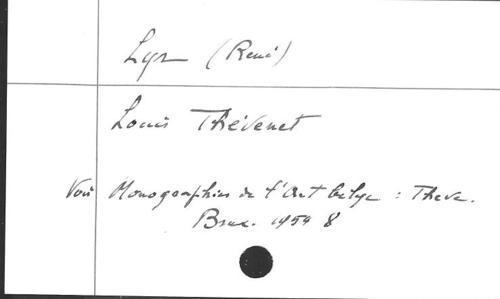 Lyr (René)
Louis Thévenet
Voir Monographies de l'Art belge : Theve.
Brux. 1954 8